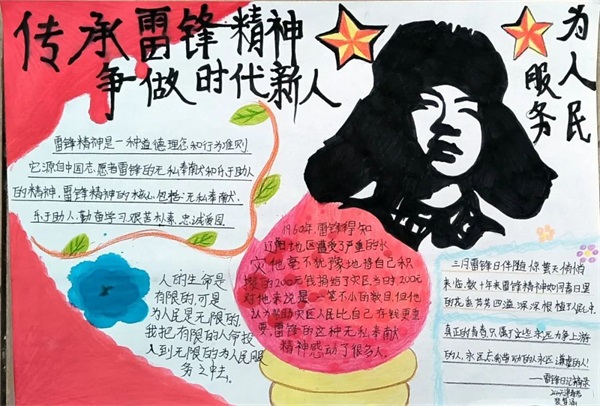 传承雷锋精神
争做时代新人
为人民
服务
雷锋精神是一种道德理念和行为准则
它源自中国志愿者雷锋的无私奉献和乐于助人
的精神,雷锋精神的核心包括:无私奉献、
乐于助人、勤奋学习、艰苦朴素、忠诚爱国
人的生命是
有限的,可是
为人民是无限的,
我把有限的人命投
入到无限的为人民服
务之中去。
1960年,雷锋得知
辽阳地区遭受了严重的水
灾他毫不犹豫地将自己积
攒的200元钱捐给了灾区,当时200元
对他来说是一笔不小的数目,但他
认为帮助灾区人民比自己存钱更重
要,雷锋的这种无私奉献
精神感动了很多人。
三月雷锋日伴随 春天悄悄
来临,数十年来雷锋精神如同春日里
的花 芬芳四溢,深深根植人民心中
真正的青春,只属于这些永远力争上游
的人,永远忘我劳动的人,永远谦虚的人!
——雷锋日记摘录